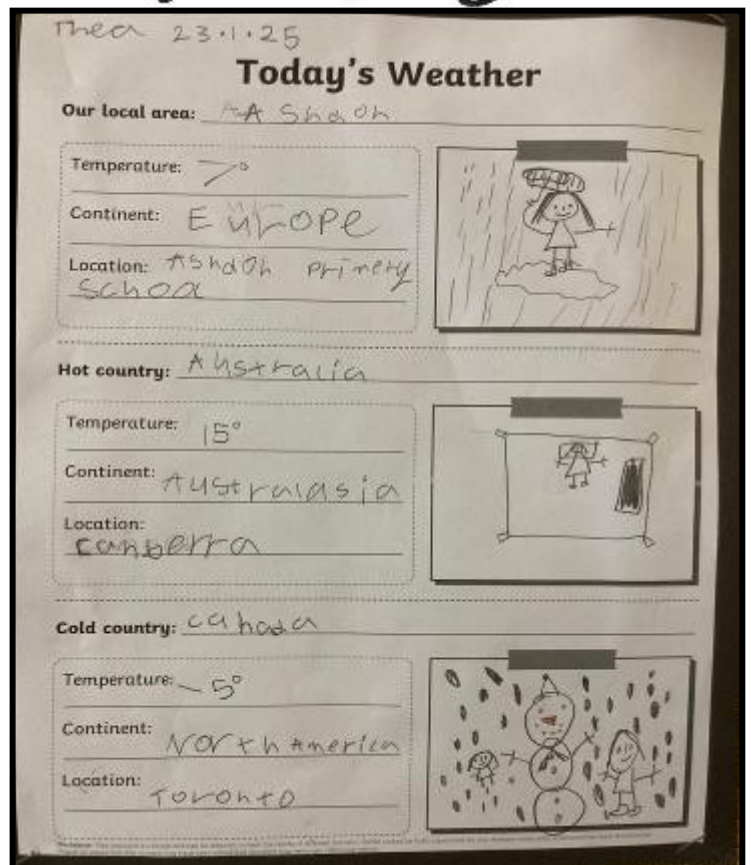 Thea 23.1.25
Today's Weather
Our local area: AAShdOn
Temperature: 7°
Continent: Europe
Location: AShdOn primery
schoa
Hot country: Australia
Temperature: 15°
Continent: Australasia
Location:
canberra
Cold country: canada
Temperature: -5°
Continent:
North America
Location:
Toronto